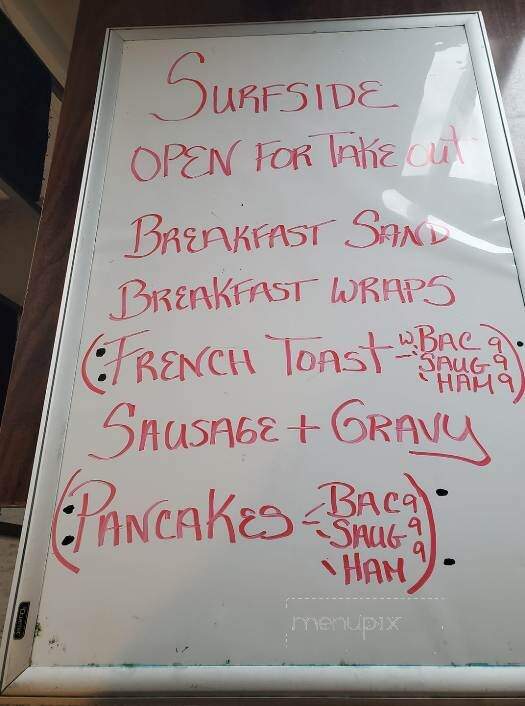 SURFSIDE
OPEN FOR TAKE OUT
BREAKFAST SAND
BREAKFAST WRAPS
(:FRENCH TOAST - w. BAC 9
SAUG 9
HAM 9):
SAUSAGE + GRAVY
(:PANCAKES - BAC 9
SAUG 9
HAM 9):
menupix